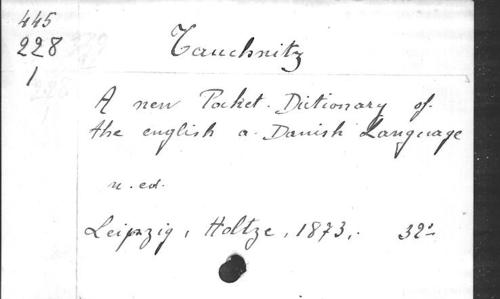 445
228
1
Tauchnitz
A new Pocket-Dictionary of
the english a. Danish Language
n. ed.
Leipzig, Holtze, 1873. 32°